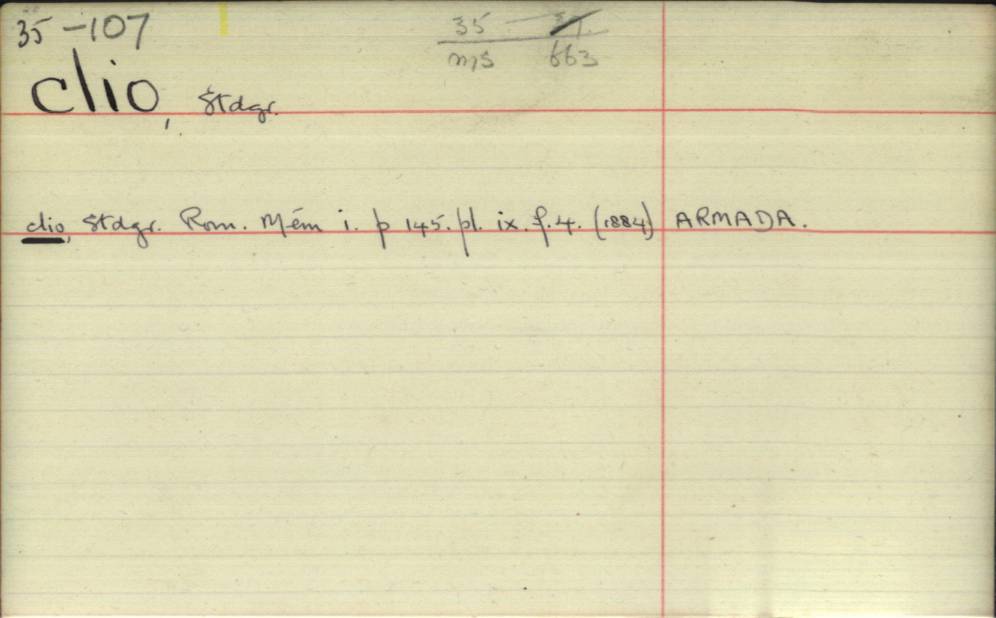 35-107
35
ms 663
clio, Stdgr.
clio, Stdgr. Rom. Mém i. p 145. pl. ix. f. 4. (1884) ARMADA.